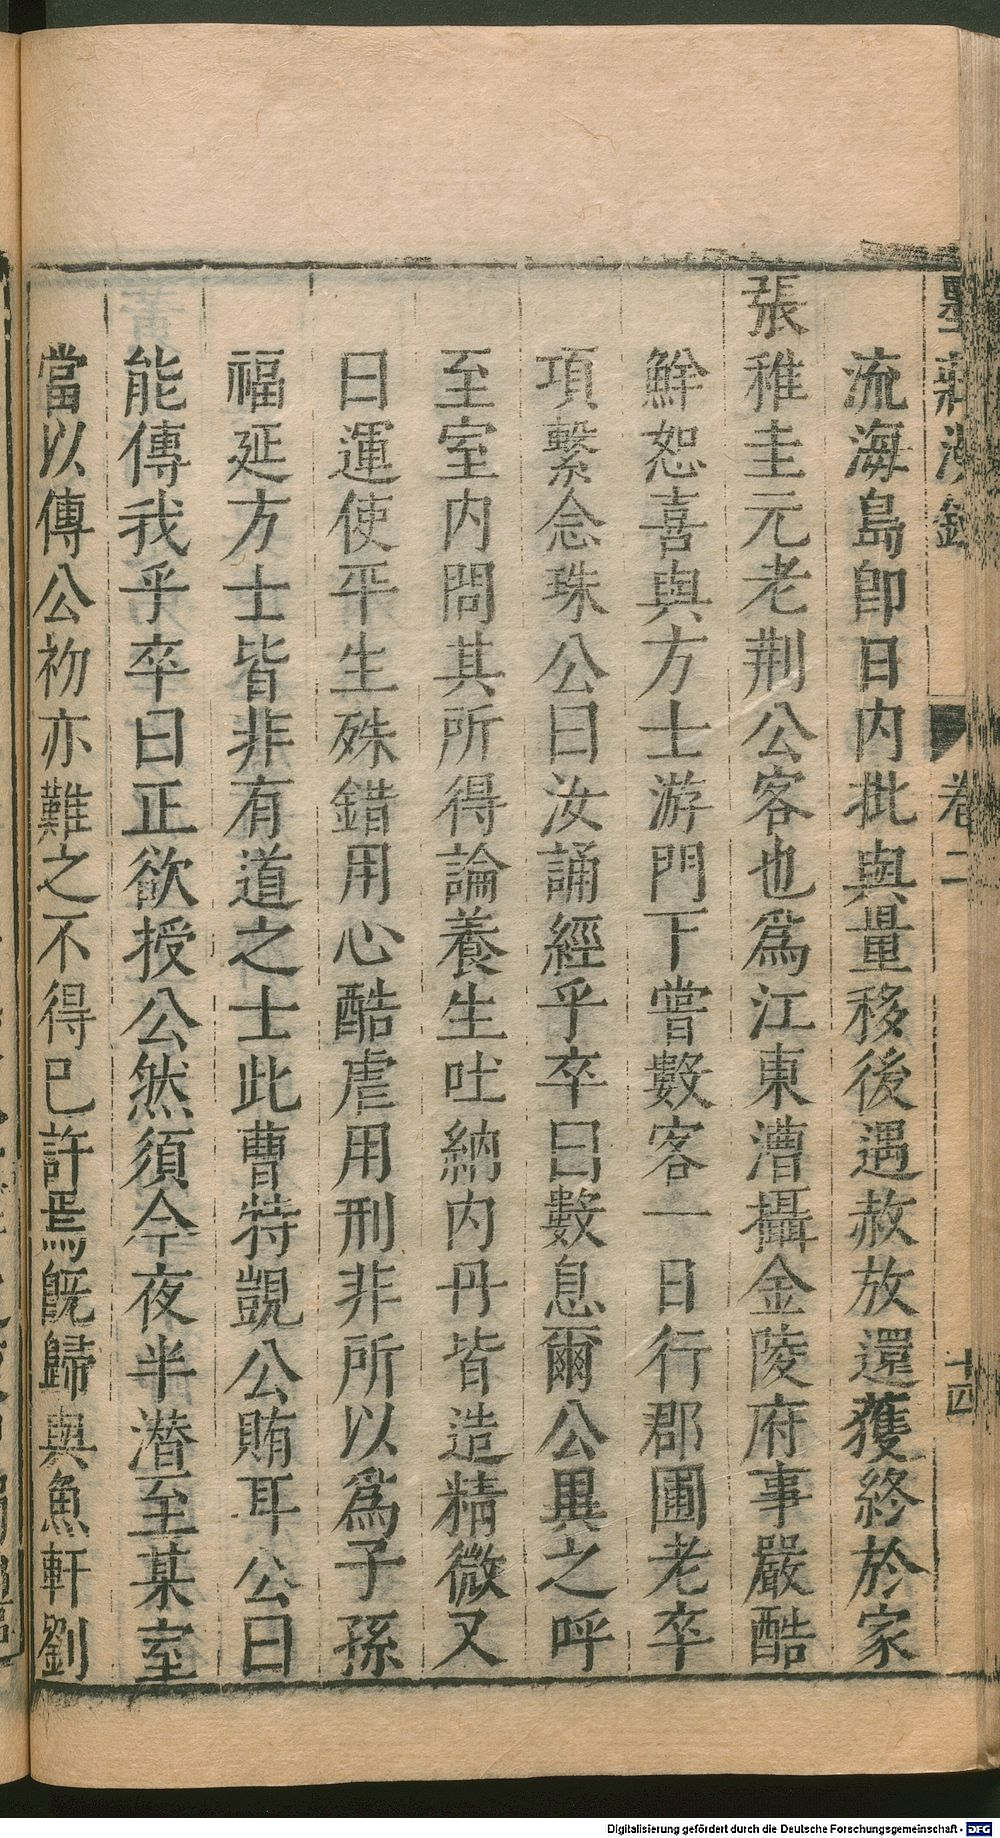 墨莊漫錄 卷二 十四
流海島卽日内批與量移後遇赦放還獲終於家
張稚圭元老荆公客也爲江東漕攝金陵府事嚴酷
鮮恕喜與方士游門下嘗數客一日行郡圃老卒
項繫念珠公曰汝誦經乎卒曰數息爾公異之呼
至室内問其所得論養生吐納内丹皆造精微又
曰運使平生殊錯用心酷虐用刑非所以爲子孫
福延方士皆非有道之士此曹特覬公賄耳公曰
能傳我乎卒曰正欲授公然須今夜半潛至某室
當以傳公初亦難之不得已許焉旣歸與魚軒劉
Digitalisierung gefördert durch die Deutsche Forschungsgemeinschaft - DFG